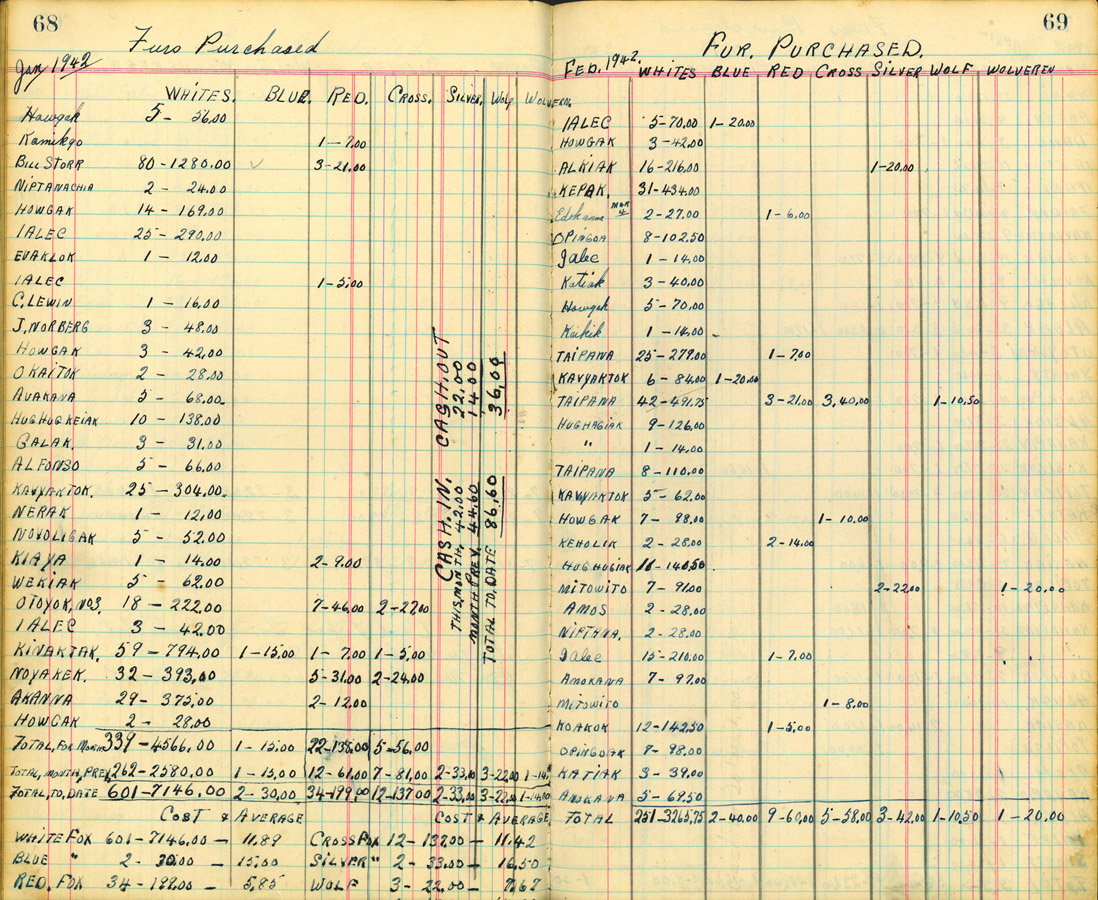 68
Furs Purchased
Jan 1942
WHITES. BLUE. RED. CROSS. SILVER. WOLF WOLVEREN.
Howgak 5 - 56.00
Kamikgo 1 - 7.00
BILL STORR 80 - 1280.00 ✓ 3 - 21.00
NIPTANACHIA 2 - 24.00
HOWGAK 14 - 169.00
IALEC 25 - 290.00
EVAKLOK 1 - 12.00
IALEC 1 - 5.00
C. LEWIN 1 - 16.00
J. NORBERG 3 - 48.00
HOWGAK 3 - 42.00
OKAITOK 2 - 28.00
AVAKANA 5 - 68.00
HUGHUGKEIAK 10 - 138.00
GALAK. 3 - 31.00
ALFONSO 5 - 66.00
KAVYAKTOK. 25 - 304.00
NERAK 1 - 12.00
NOVOLIGAK 5 - 52.00
KIAYA 1 - 14.00 2 - 9.00
WEKIAK 5 - 62.00
OTOYOK, NO3. 18 - 222.00 7 - 46.00 2 - 27.00
IALEC 3 - 42.00
KINAKTAK. 59 - 794.00 1 - 15.00 1 - 7.00 1 - 5.00
NOYAKEK. 32 - 393.00 5 - 31.00 2 - 24.00
AKANNA 29 - 375.00 2 - 12.00
HOWGAK 2 - 28.00
TOTAL, FOR MONTH 339 - 4566.00 1 - 15.00 22 - 138.00 5 - 56.00
TOTAL, MONTH, PREV. 262 - 2580.00 1 - 15.00 12 - 61.00 7 - 81.00 2 - 33.00 3 - 22.00 1 - 14.
TOTAL, TO, DATE 601 - 7146.00 2 - 30.00 34 - 199.00 12 - 137.00 2 - 33.00 3 - 22.00 1 - 14.00
COST & AVERAGE COST & AVERAGE
WHITE FOX 601 - 7146.00 - 11.89 CROSS FOX 12 - 137.00 - 11.42
BLUE " 2 - 30.00 - 15.00 SILVER " 2 - 33.00 - 16.50
RED, FOX 34 - 199.00 - 5.85 WOLF 3 - 22.00 - 7.67
CASH. IN. CASH. OUT
THIS, MONTH, 42.00 22.00
MONTH PREV. 44.60 14.00
TOTAL TO, DATE 86.60 36.00
69
FUR. PURCHASED.
FEB. 1942. WHITES BLUE RED CROSS SILVER WOLF WOLVEREN
IALEC 5 - 70.00 1 - 20.00
HOWGAK 3 - 42.00
ALKIAK 16 - 216.00 1 - 20.00
KEPAK. 31 - 434.00
2 - 27.00 1 - 6.00
OPINGOA 8 - 102.50
Jalec 1 - 14.00
Katiak 3 - 40.00
Howgak 5 - 70.00
Kaikik 1 - 14.00
TAIPANA 25 - 279.00 1 - 7.00
KAVYAKTOK 6 - 84.00 1 - 20.00
TAIPANA 42 - 491.75 3 - 21.00 3, 40.00 1 - 10.50
HUGHAGIAK 9 - 126.00
" 1 - 14.00
TAIPANA 8 - 110.00
KAVYAKTOK 5 - 62.00
HOWGAK 7 - 98.00 1 - 10.00
KEHOLIK 2 - 28.00 2 - 14.00
HUGHUGIAK 11 - 140.50
MITOWITO 7 - 91.00 2 - 22.00 1 - 20.00
AMOS 2 - 28.00
NIPTANA. 2 - 28.00
Jalec 15 - 210.00 1 - 7.00
AMOKANA 7 - 97.00
MITOWITO 1 - 8.00
KOAKOK 12 - 142.50 1 - 5.00
OPINGOAK 7 - 98.00
KATIAK 3 - 39.00
AMOKANA 5 - 69.50
TOTAL 251 - 3265.75 2 - 40.00 9 - 60.00 5 - 58.00 3 - 42.00 1 - 10.50 1 - 20.00